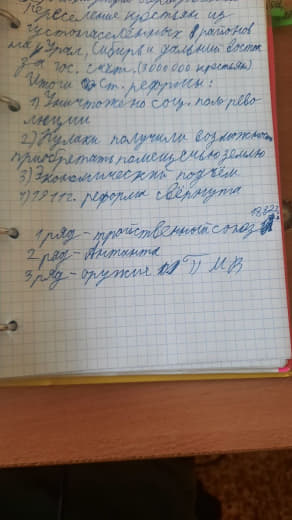 Переселение крестьян из
густонаселённых районов
на Урал, Сибирь и дальний восток
за гос. счёт. (3000000 крестьян)
Итоги ст. реформы:
1) Уничтожено соц. поле рево
люции
2) Кулаки получили возможность
приобретать помещичью землю
3) Экономический подъём
4) 1911г. реформа свёрнута
1 ряд - тройственный союз
2 ряд - Антанта
3 ряд - оружие ПМВ